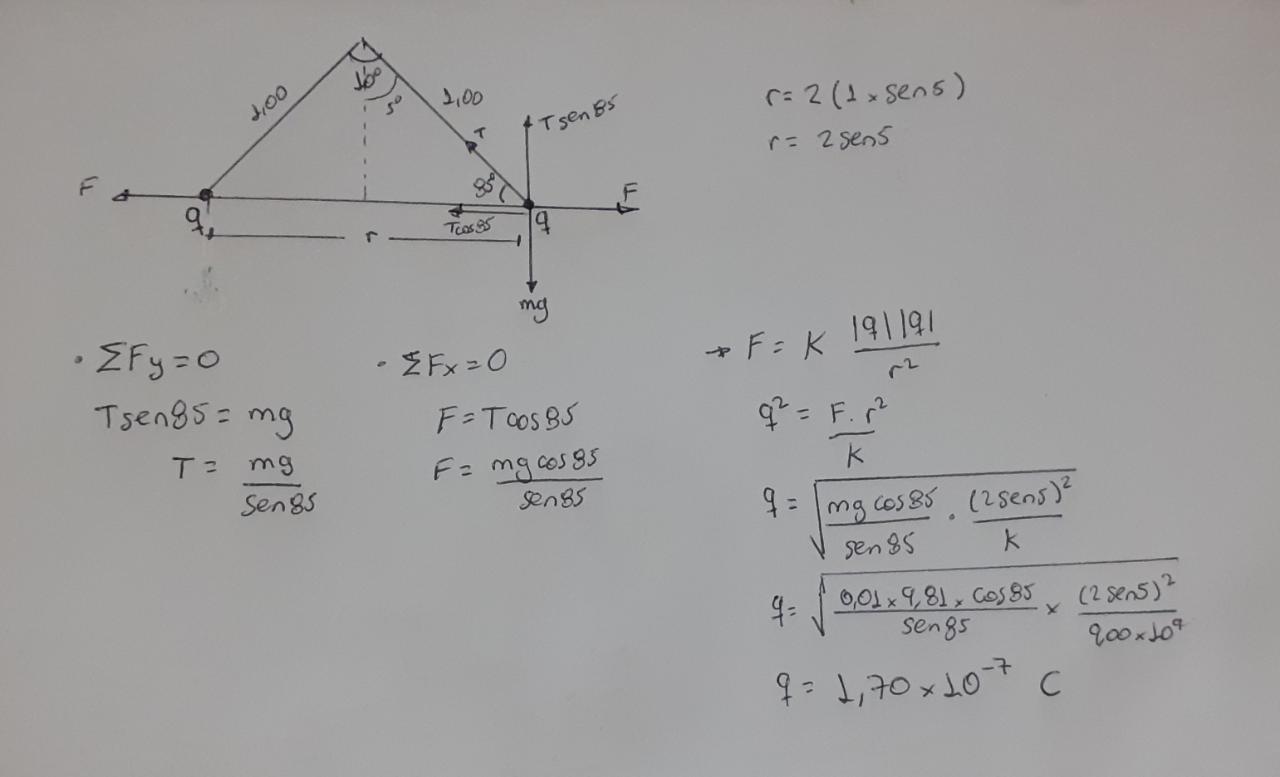 10°
5°
1,00
1,00
T
T sen 85
85°
F
F
q
q
T cos 85
r
mg
r = 2 (1 × sen 5)
r = 2 sen 5
• ΣFy = 0
T sen 85 = mg
T = mg / sen 85
• ΣFx = 0
F = T cos 85
F = mg cos 85 / sen 85
→ F = K |q||q| / r²
q² = F . r² / k
q = √(mg cos 85 / sen 85 . (2 sen 5)² / k)
q = √(0,01 × 9,81 × cos 85 / sen 85 × (2 sen 5)² / 9,00 × 10⁹)
q = 1,70 × 10⁻⁷ C